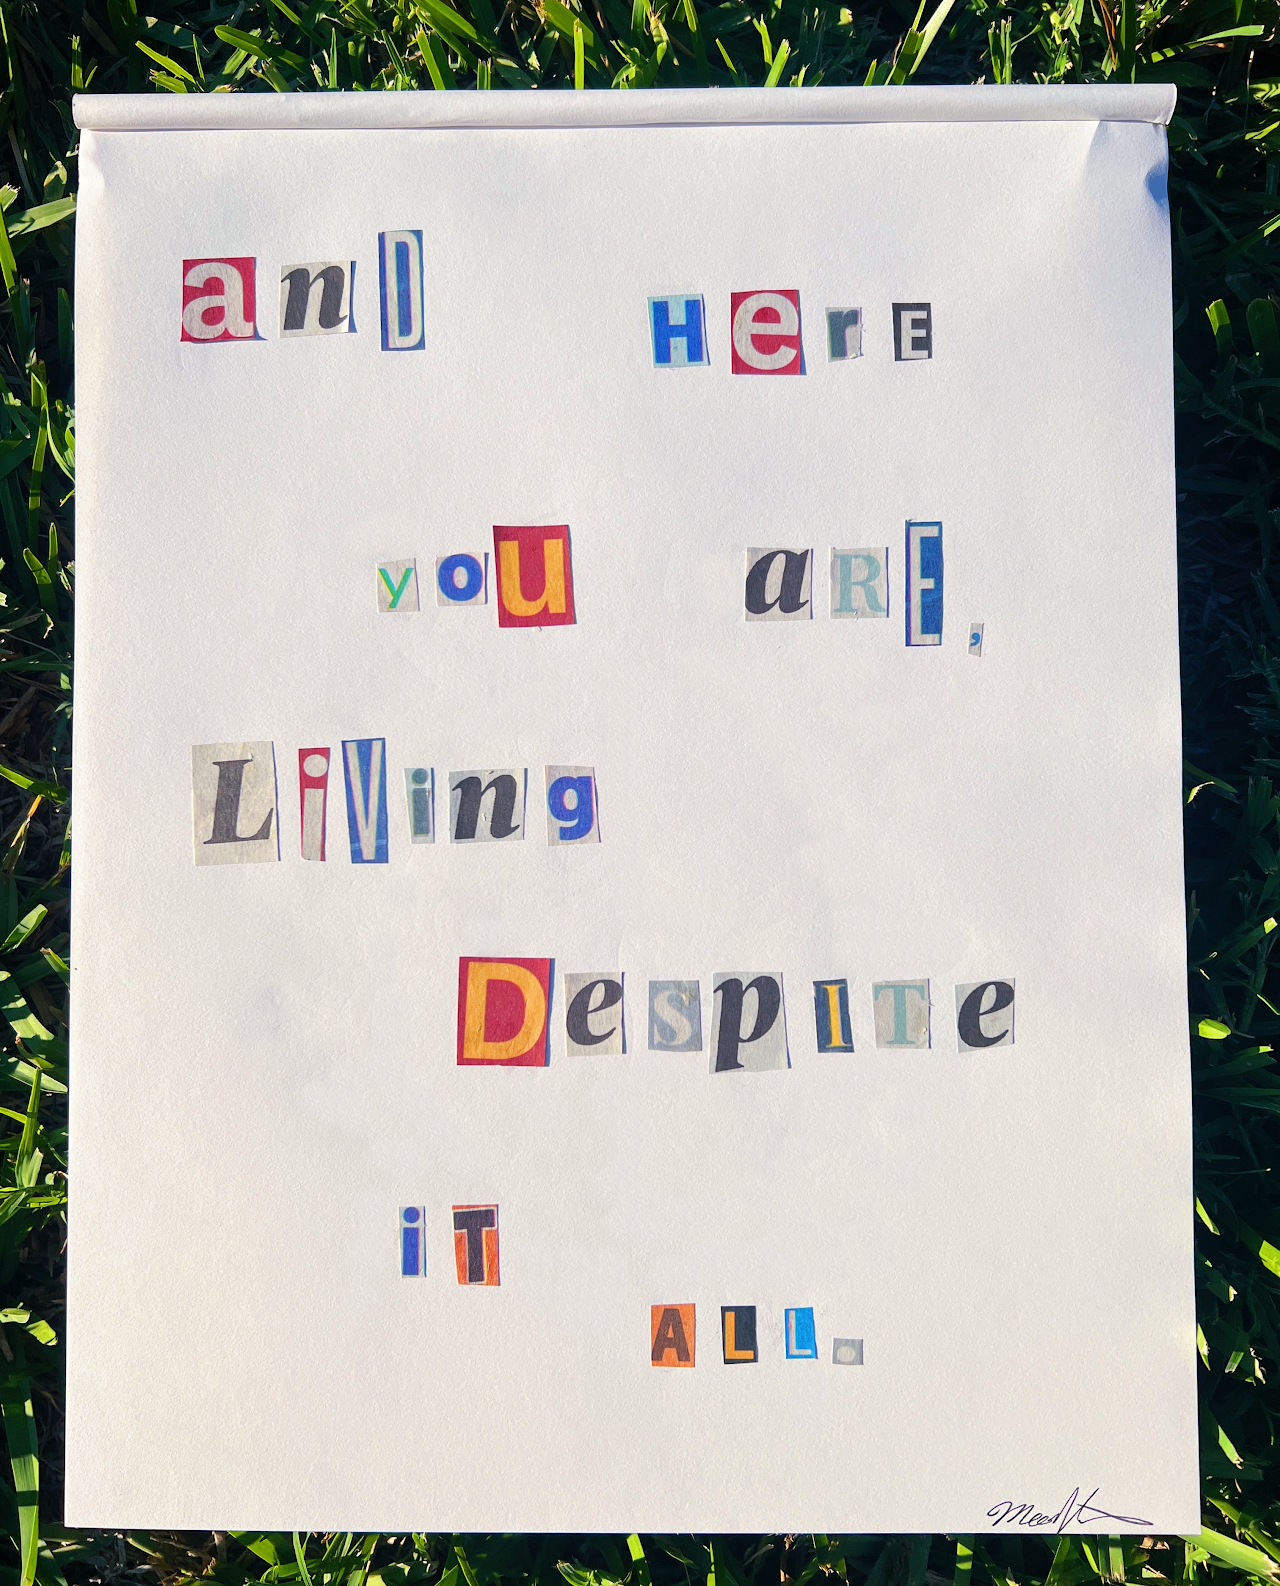 anD HerE
you aRE,
LiVing
DespITe
iT
ALL.